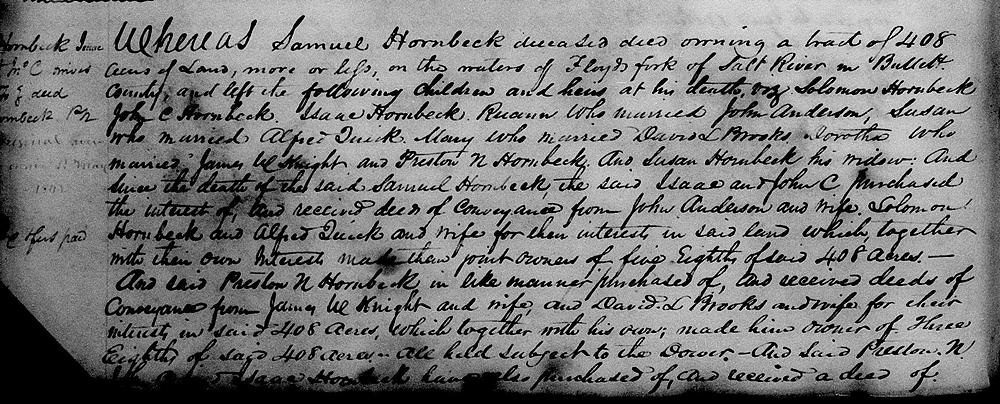 Hornbeck Isaac
Jno C
To } deed
Hornbeck P N
Whereas Samuel Hornbeck deceased died owning a tract of 408
acres of Land, more or less, on the waters of Floyds fork of Salt River in Bullitt
County, and left the following children and heirs at his death, viz Solomon Hornbeck
John C Hornbeck. Isaac Hornbeck. Ruann who married John Anderson, Susan
who married Alfred Quick. Mary who married David L Brooks Dorotha who
married James W Knight and Preston N Hornbeck, And Susan Hornbeck his widow: And
Since the death of the said Samuel Hornbeck, the said Isaac and John C. purchased
the interest of, and received deeds of Conveyance from John Anderson and wife. Solomon
Hornbeck and Alfred Quick and wife for their interests in said land which, together
with their own Interests made them joint owners of five Eighths of said 408 Acres.—
And said Preston N Hornbeck, in like manner purchased of, and received deeds of
Conveyance from James W Knight and wife, and David L Brooks and wife for their
interest, in said 408 Acres, which together with his own; made him owner of Three
Eighths of said 408 acres.- all held subject to the Dower.- And said Preston N
and Isaac Hornbeck have also purchased of, and received a deed of